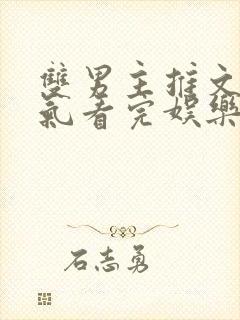 雙男主推文
氣看完娛樂
石志勇